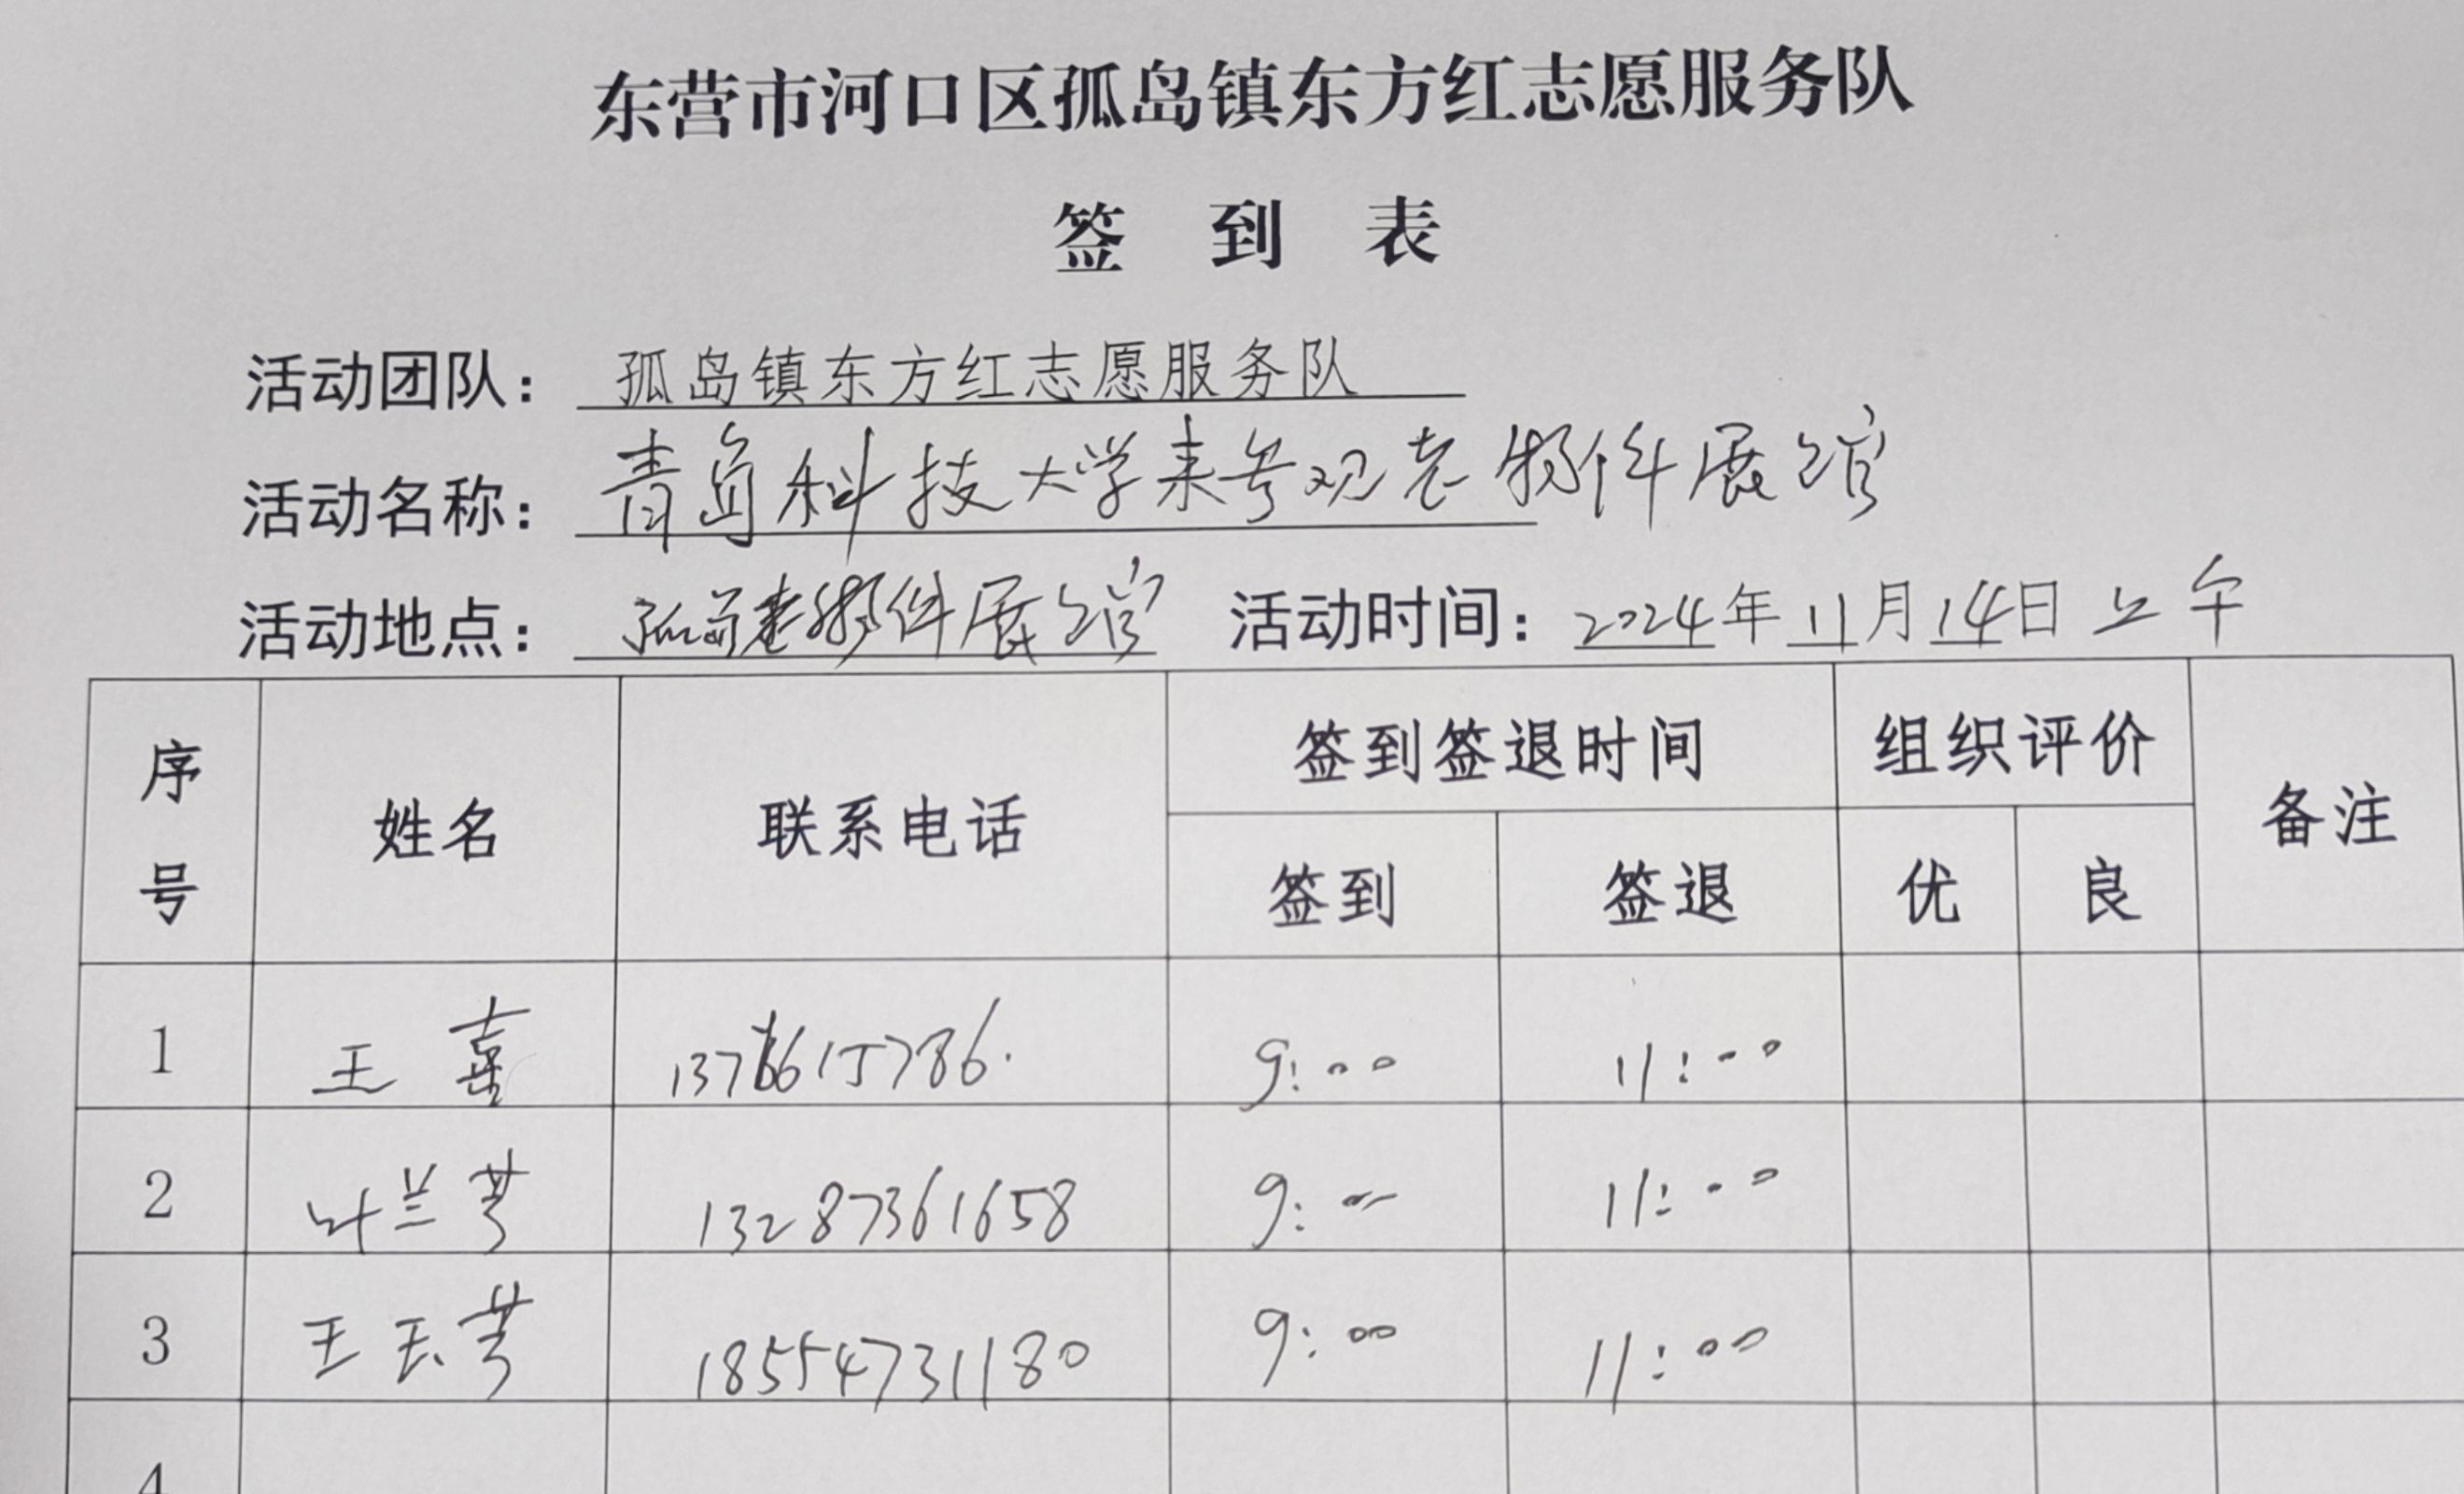 东营市河口区孤岛镇东方红志愿服务队
签 到 表
活动团队： 孤岛镇东方红志愿服务队
活动名称： 青岛科技大学来参观老物件展馆
活动地点： 孤岛老物件展馆 活动时间： 2024年11月14日上午
序号 姓名 联系电话 签到签退时间 组织评价 备注
签到 签退 优 良
1 王喜 9:00 11:00
2 叶兰芳 13287361658 9:00 11:00
3 王玉芳 18554731180 9:00 11:00
4